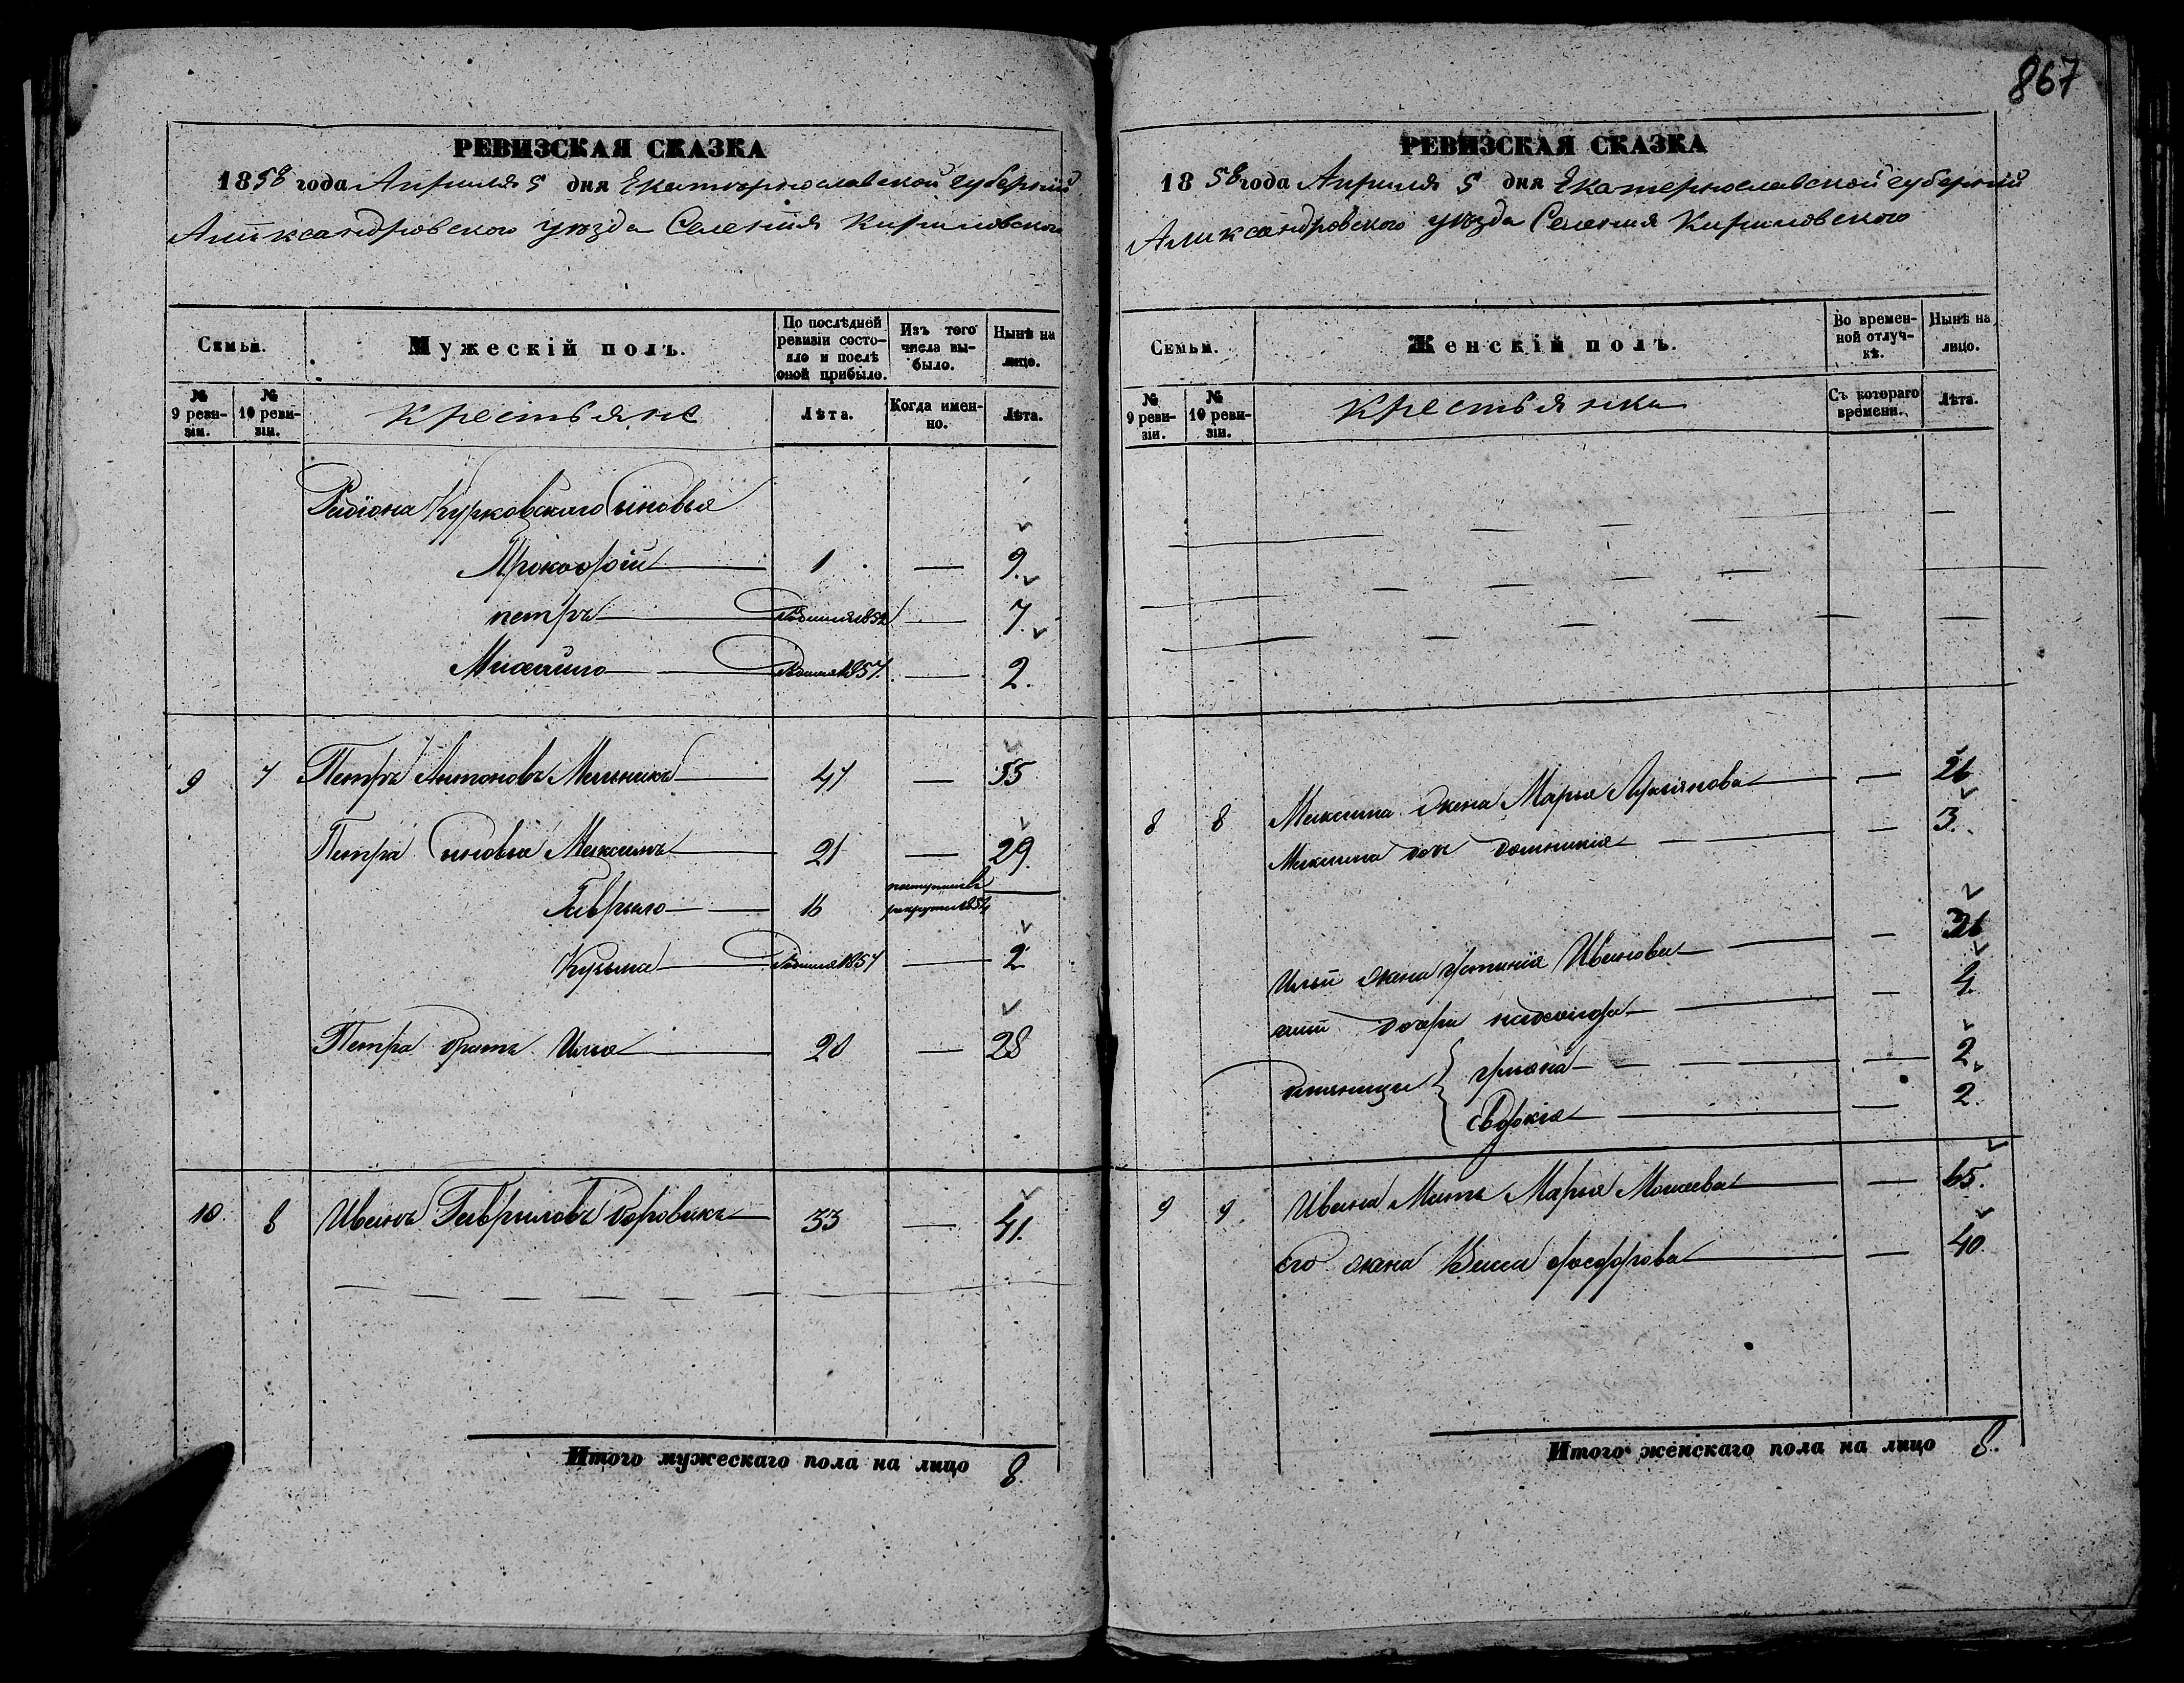 867
РЕВИЗСКАЯ СКАЗКА
1858 года Апреля 5 дня Екатеринославской губернии
Александровского уезда Селения Кириловского
Семьи. Мужескій полъ. По послѣдней ревизіи состояло и послѣ оной прибыло. Изъ того числа выбыло. Нынѣ на лицо.
№ 9 ревизіи. № 10 ревизіи. Крестьяне Лѣта. Когда именно. Лѣта.
Радіона Курковскаго сыновья
Прокофій 1 — 9.
петръ Родился 1852 — 7.
Михайло Родился 1857. — 2.
9 7 Петръ Антоновъ Мельникъ 47 — 55
Петра сыновья Максимъ 21 — 29.
Гаврыло 16 рекруты 1854
Кузьма Родился 1857 — 2
Петра братъ Илья 20 — 28
10. 8 Иванъ Гавриловъ Боровикъ 33 — 41.
Итого мужескаго пола на лицо 8.
РЕВИЗСКАЯ СКАЗКА
1858 года Апреля 5 дня Екатеринославской губернии
Александровского уезда Селения Кириловского
Семьи. Женскій полъ. Во временной отлучкѣ. Нынѣ на лицо.
№ 9 ревизіи. № 10 ревизіи. Крестьянки Съ котораго времени. Лѣта.
8 8 Максима жена Марья Лукіянова — 26
Максима дочь Домникія — 3.
Ильи жена Устинія Иванова — 26
дочери 4.
близницы Уліяна — 2.
Евдокія — 2.
9 9. Ивана Мать Марья Моисеева — 65.
Его жена Васса Федорова — 40.
Итого женскаго пола на лицо 8.